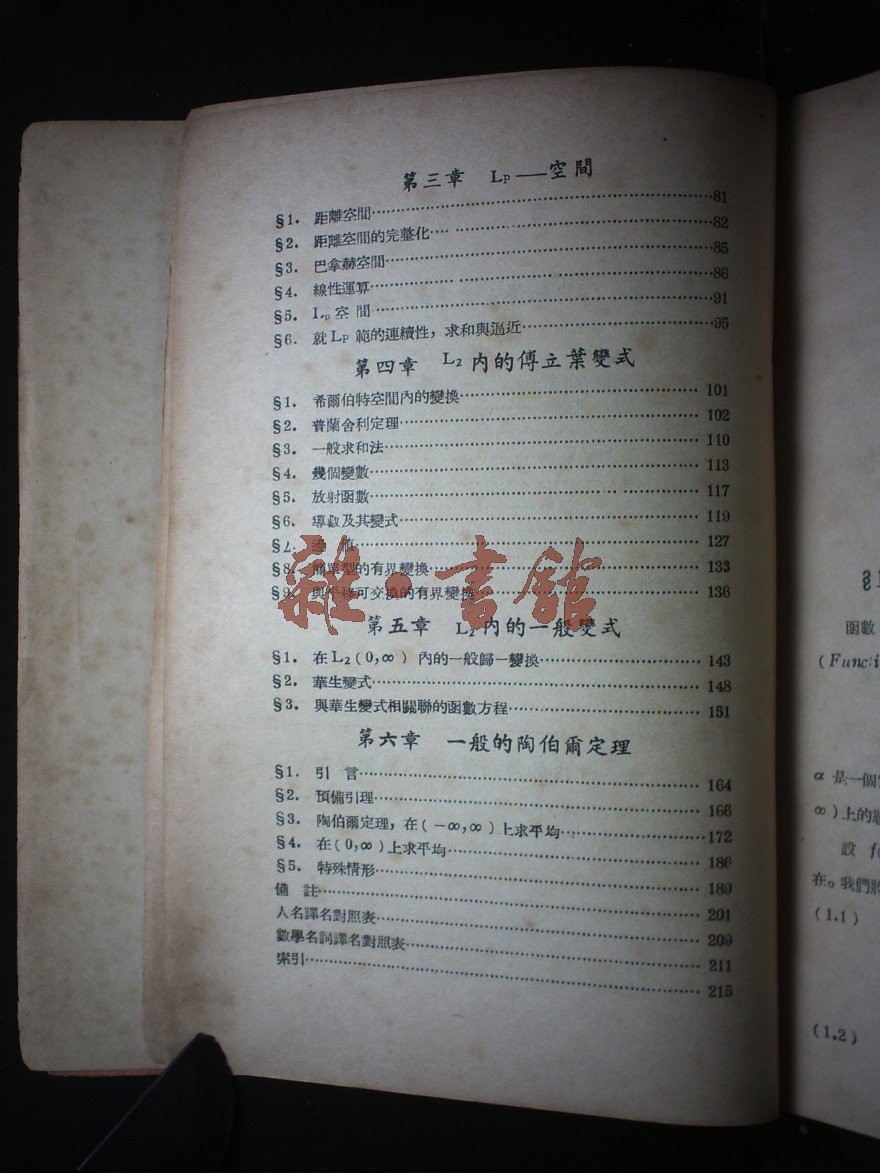 第三章 Lp——空間
§1. 距離空間……81
§2. 距離空間的完整化……82
§3. 巴拿赫空間……85
§4. 線性運算……86
§5. Lp 空間……91
§6. 就 Lp 範的連續性，求和與逼近……95
第四章 L2 內的傅立葉變式
§1. 希爾伯特空間內的變換……101
§2. 普蘭舍利定理……102
§3. 一般求和法……110
§4. 幾個變數……113
§5. 放射函數……117
§6. 導數及其變式……119
§7. ……127
§8. 簡單型的有界變換……133
§9. 與平移可交換的有界變換……136
雜·書館
第五章 L2 內的一般變式
§1. 在 L2 (0,∞) 內的一般歸一變換……143
§2. 華生變式……148
§3. 與華生變式相關聯的函數方程……151
第六章 一般的陶伯爾定理
§1. 引言……164
§2. 預備引理……166
§3. 陶伯爾定理，在(−∞,∞)上求平均……172
§4. 在(0,∞)上求平均……186
§5. 特殊情形……189
備註……201
人名譯名對照表……209
數學名詞譯名對照表……211
索引……215
函數
(Functi
α 是一個
∞)上的
設 f(
在。我們將
(1.1)
(1.2)